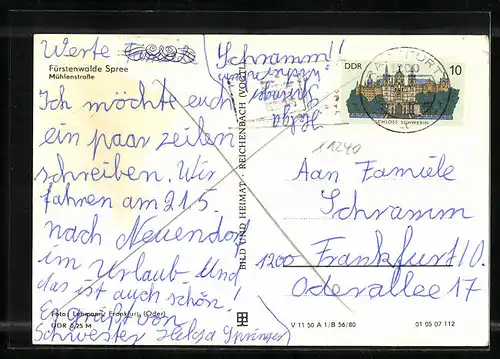 Werte
Schramm!!
wünscht euch
Springer
Helga
Fürstenwalde Spree
Mühlenstraße
Ich möchte euch
ein paar zeilen
schreiben. Wir
fahren am 21.5
nach Neuendorf
im Urlaub und
das ist auch schön!
von
Schwester Helga Springer
Foto: Lehmann, Frankfurt (Oder)
DDR 0,25 M
BILD UND HEIMAT · REICHENBACH (VOGTL)
V 11 50 A 1/B 56/80
01 05 07 112
DDR
10
SCHLOSS SCHWERIN
X1240
Aan Familie
Schramm
1200 Frankfurt/O.
Oderallee 17